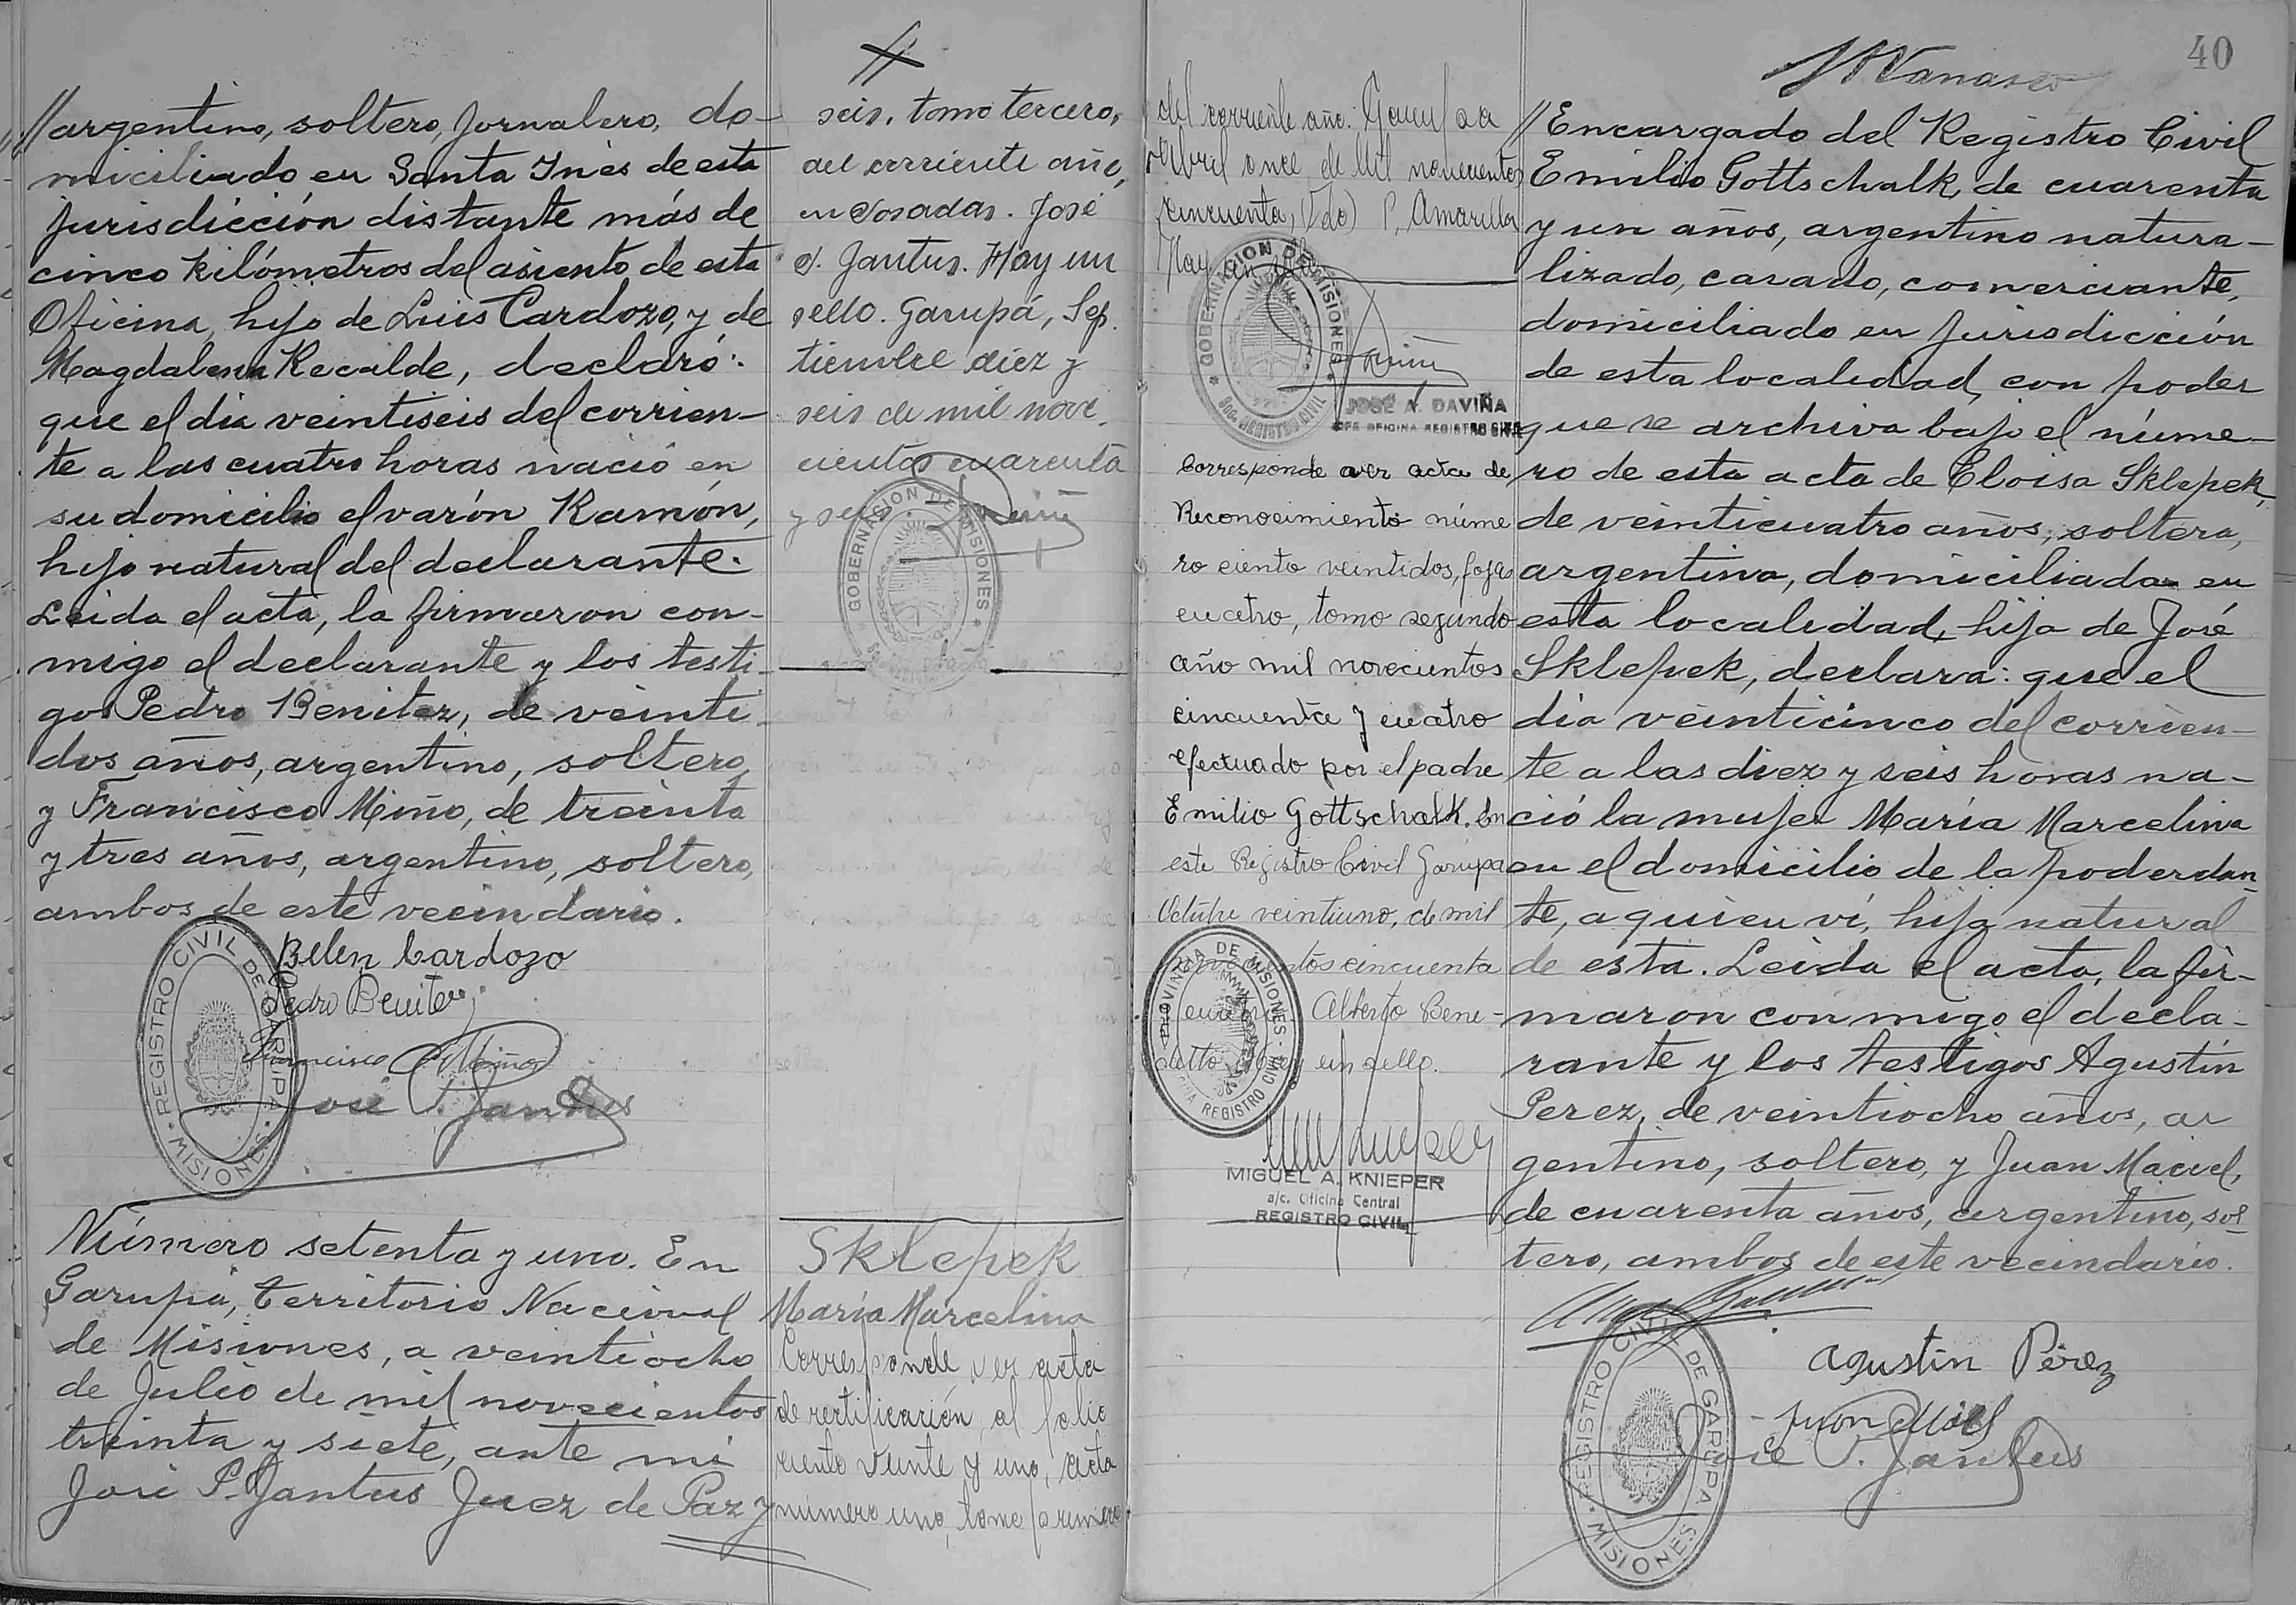 //argentino, soltero, jornalero, do-
miciliado en Santa Inés de esta
jurisdicción distante más de
cinco kilómetros del asiento de esta
Oficina, hijo de Luis Cardozo, y de
Magdalena Recalde, declaró:
que el día veintiseis del corrien-
te a las cuatro horas nació en
su domicilio el varón Ramón,
hijo natural del declarante.
Leida el acta, la firmaron con-
migo el declarante y los testi-
gos Pedro Benitez, de veinti-
dos años, argentino, soltero,
y Francisco Miño, de treinta
y tres años, argentino, soltero,
ambos de este vecindario.
Belen Cardozo
Pedro Benitez
Francisco Miño
José P. Jantus
REGISTRO CIVIL DE GARUPA
MISIONES
Número setenta y uno. En
Garupá, territorio Nacional
de Misiones, a veintiocho
de Julio de mil novecientos
treinta y siete, ante mi
José P. Jantus Juez de Paz y
//
seis, tomo tercero,
del corriente año,
en Posadas. José
P. Jantus. Hay un
sello. Garupá, Sep-
tiembre diez y
seis de mil nove-
cientos cuarenta
y seis
GOBERNACION DE MISIONES
Sklepek
María Marcelina
Corresponde ver acta
de rectificación al folio
ciento veinte y uno, acta
número uno, tomo primero
del corriente año. Garupá
Abril once de Mil novecientos
cincuenta, (Fdo) P. Amarilla
Hay un sello
GOBERNACION DE MISIONES
REGISTRO CIVIL
JOSÉ A. DAVIÑA
JEFE OFICINA REGISTRO CIVIL
Corresponde aver acta de
Reconocimiento núme
ro ciento veintidos, fojas
cuatro, tomo segundo
año mil novecientos
cincuenta y cuatro
efectuado por el padre
Emilio Gottschalk. En
este Registro Civil Garupa
Octubre veintiuno, de mil
novecientos cincuenta
Alberto Bene-
detto. Hay un sello.
PROVINCIA DE MISIONES
REGISTRO CIVIL
MIGUEL A. KNIEPER
a/c. Oficina Central
REGISTRO CIVIL
40
//Encargado del Registro Civil
Emilio Gottschalk, de cuarenta
y un años, argentino natura-
lizado, casado, comerciante,
domiciliado en jurisdicción
de esta localidad, con poder
que se archiva bajo el núme-
ro de esta acta de Eloisa Sklepek,
de veinticuatro años, soltera,
argentina, domiciliada en
esta localidad, hija de José
Sklepek, declara: que el
día veinticinco del corrien-
te a las diez y seis horas na-
ció la mujer María Marcelina
en el domicilio de la poderdan-
te, a quien ví, hija natural
de esta. Leida el acta, la fir-
maron conmigo el decla-
rante y los testigos Agustín
Perez, de veintiocho años, ar
gentino, soltero, y Juan Maciel,
de cuarenta años, argentino, sol
tero, ambos de este vecindario.
Agustin Pérez
José P. Jantus
REGISTRO CIVIL DE GARUPA
MISIONES